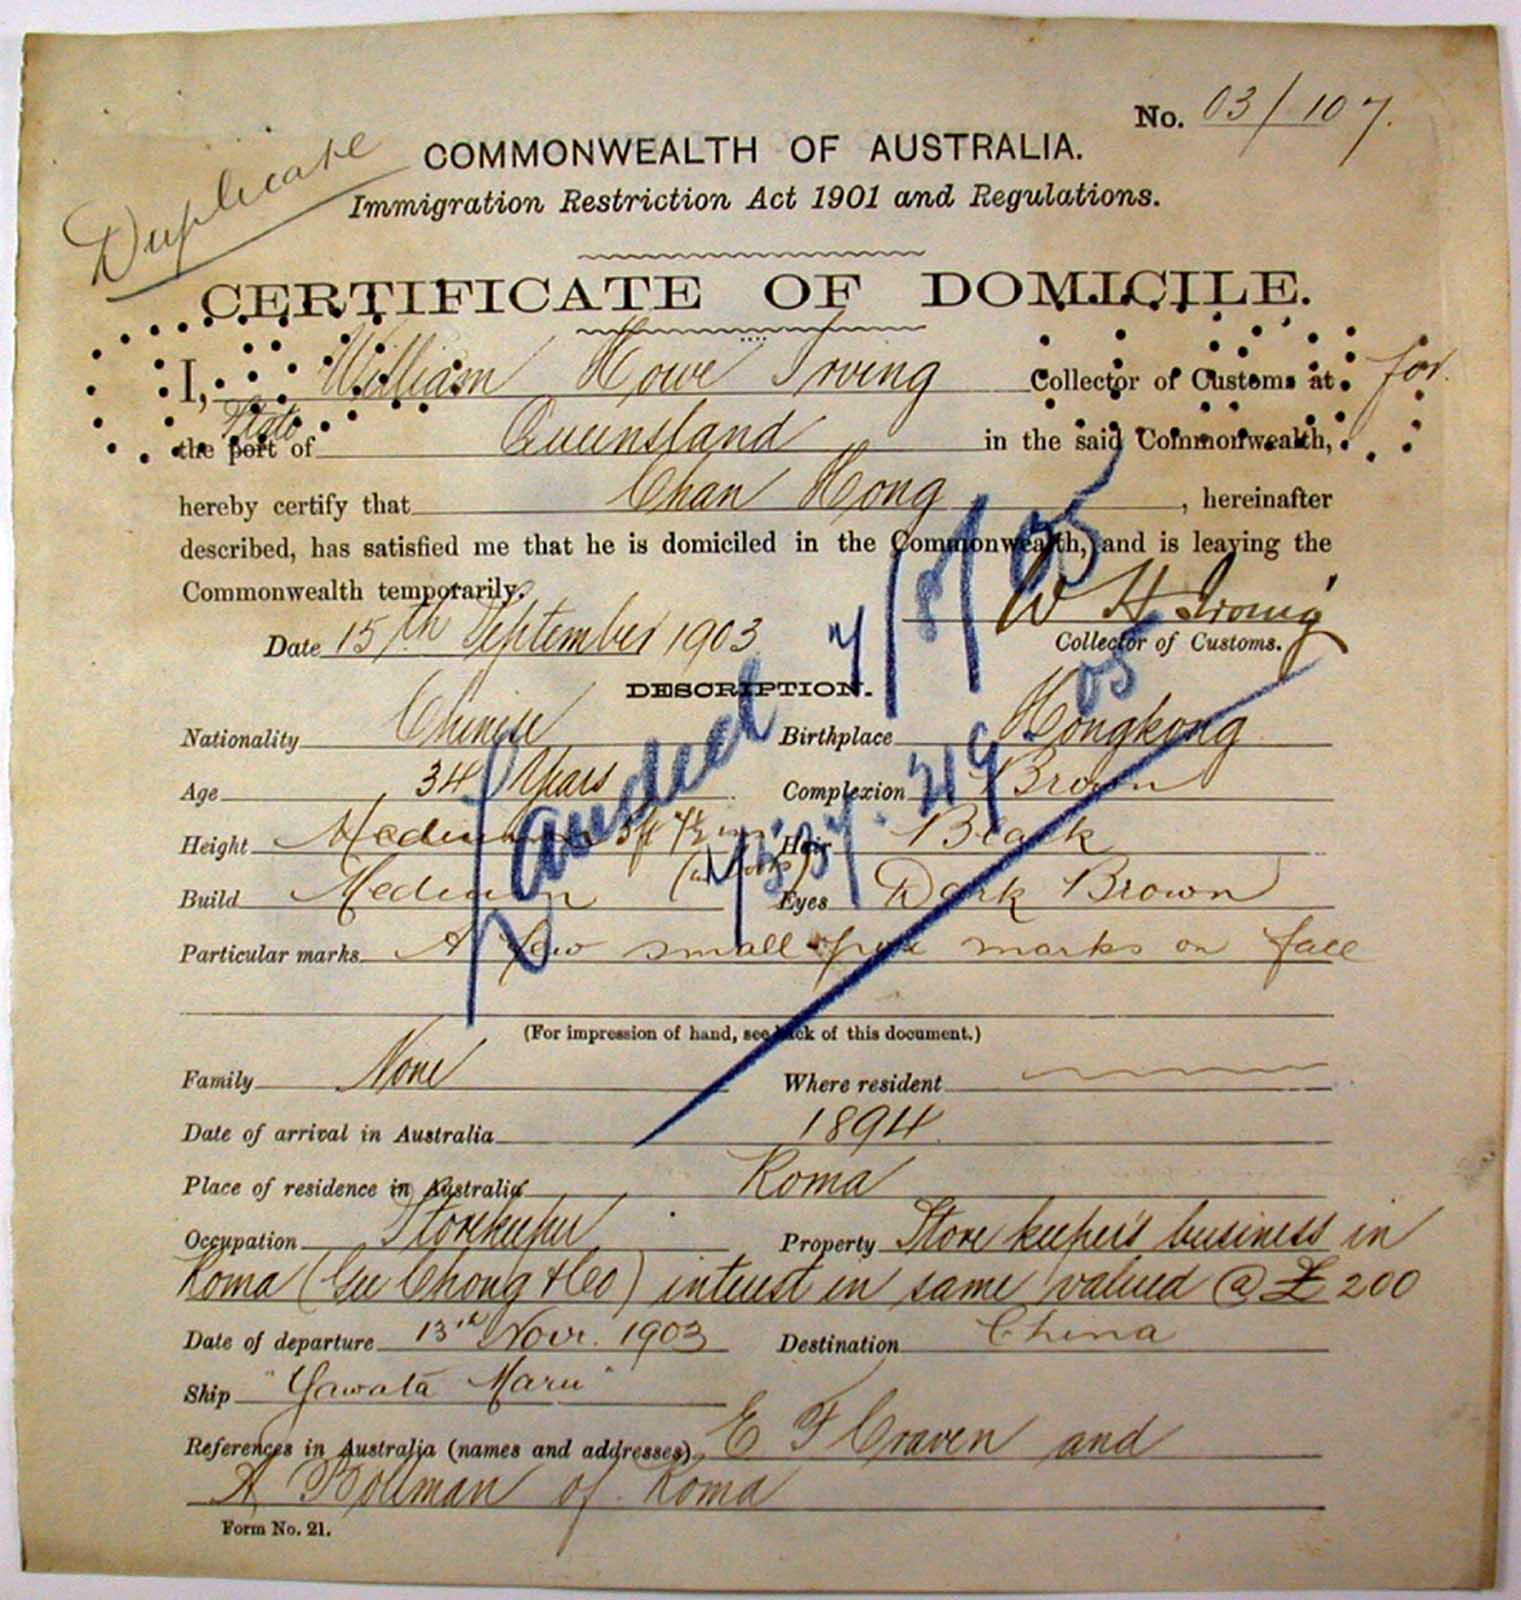 No. 03/107.
Duplicate
COMMONWEALTH OF AUSTRALIA.
Immigration Restriction Act 1901 and Regulations.
CERTIFICATE OF DOMICILE.
I, William Howe Irving Collector of Customs at for
the port of State Queensland in the said Commonwealth,
hereby certify that Chan Hong, hereinafter
described, has satisfied me that he is domiciled in the Commonwealth, and is leaving the
Commonwealth temporarily.
W H Irving
Date 15th September 1903 Collector of Customs.
DESCRIPTION.
Nationality Chinese Birthplace Hongkong
Age 34 Years Complexion Brown
Height Medium 5ft 7½ ins Hair Black
Build Medium Eyes Dark Brown
Particular marks A few small pox marks on face
(For impression of hand, see back of this document.)
Family None Where resident
Date of arrival in Australia 1894
Place of residence in Australia Roma
Occupation Storekeeper Property Store keeper's business in
Roma (Gee Chong & Co) interest in same valued @ £200
Date of departure 13th Novr. 1903 Destination China
Ship "Yawata Maru"
References in Australia (names and addresses) E F Craven and
A Bollman of Roma
Form No. 21.
Landed
05